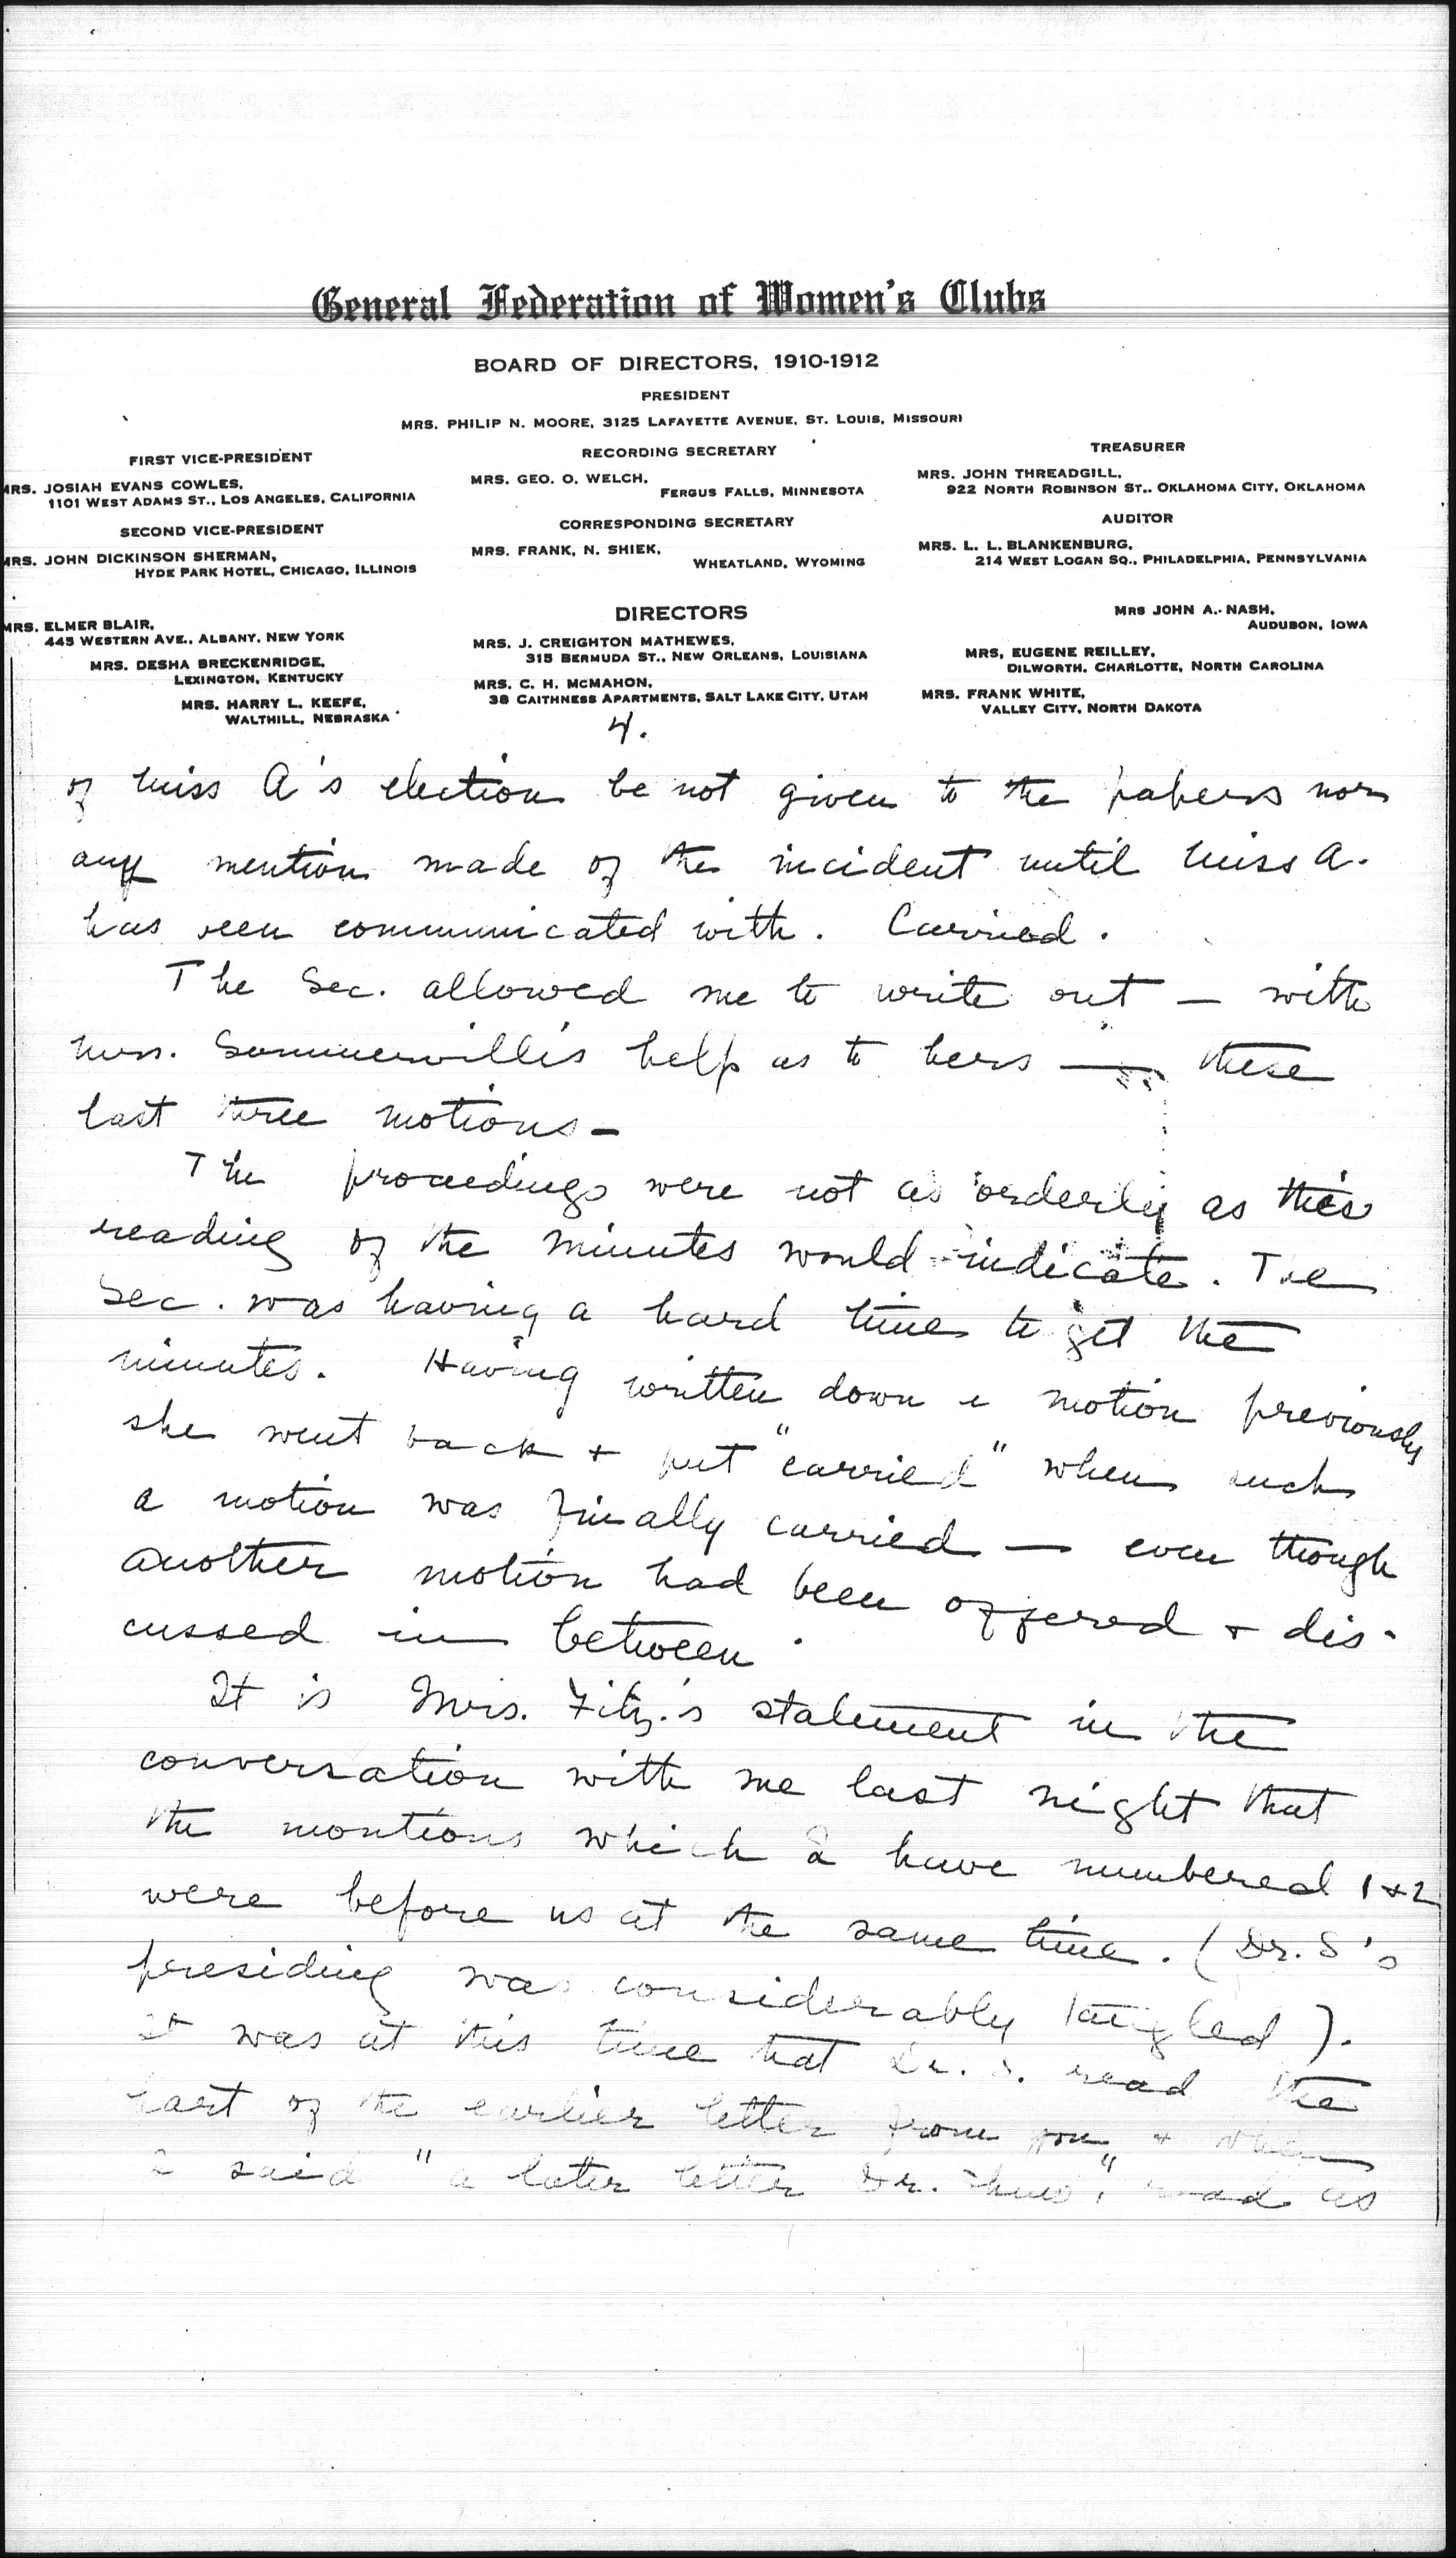 General Federation of Women's Clubs
BOARD OF DIRECTORS, 1910-1912
PRESIDENT
MRS. PHILIP N. MOORE, 3125 LAFAYETTE AVENUE, ST. LOUIS, MISSOURI
FIRST VICE-PRESIDENT
MRS. JOSIAH EVANS COWLES,
1101 WEST ADAMS ST., LOS ANGELES, CALIFORNIA
SECOND VICE-PRESIDENT
MRS. JOHN DICKINSON SHERMAN,
HYDE PARK HOTEL, CHICAGO, ILLINOIS
RECORDING SECRETARY
MRS. GEO. O. WELCH,
FERGUS FALLS, MINNESOTA
CORRESPONDING SECRETARY
MRS. FRANK, N. SHIEK,
WHEATLAND, WYOMING
TREASURER
MRS. JOHN THREADGILL,
922 NORTH ROBINSON ST., OKLAHOMA CITY, OKLAHOMA
AUDITOR
MRS. L. L. BLANKENBURG,
214 WEST LOGAN SQ., PHILADELPHIA, PENNSYLVANIA
DIRECTORS
MRS. ELMER BLAIR,
445 WESTERN AVE., ALBANY, NEW YORK
MRS. DESHA BRECKENRIDGE,
LEXINGTON, KENTUCKY
MRS. HARRY L. KEEFE,
WALTHILL, NEBRASKA
MRS. J. CREIGHTON MATHEWES,
315 BERMUDA ST., NEW ORLEANS, LOUISIANA
MRS. C. H. McMAHON,
38 CAITHNESS APARTMENTS, SALT LAKE CITY, UTAH
MRS JOHN A. NASH,
AUDUBON, IOWA
MRS, EUGENE REILLEY,
DILWORTH, CHARLOTTE, NORTH CAROLINA
MRS. FRANK WHITE,
VALLEY CITY, NORTH DAKOTA
4.
of Miss A's election be not given to the papers nor
any mention made of the incident until Miss A.
has been communicated with. Carried.
The Sec. allowed me to write out — with
Mrs. Sommerville's help as to hers — these
last three motions —
The proceedings were not as orderly as this
reading of the minutes would indicate. The
Sec. was having a hard time to get the
minutes. Having written down a motion previously
she went back + put "carried" when such
a motion was finally carried — even though
another motion had been offered + dis-
cussed in between.
It is Mrs. Fitz.'s statement in the
conversation with me last night that
the montions which I have numbered 1+2
were before us at the same time. (Dr. S's
presiding was considerably tangled).
It was at this time that Dr. S. read the
part of the earlier letter from you + when
I said "a later letter Dr. Shaw", read as